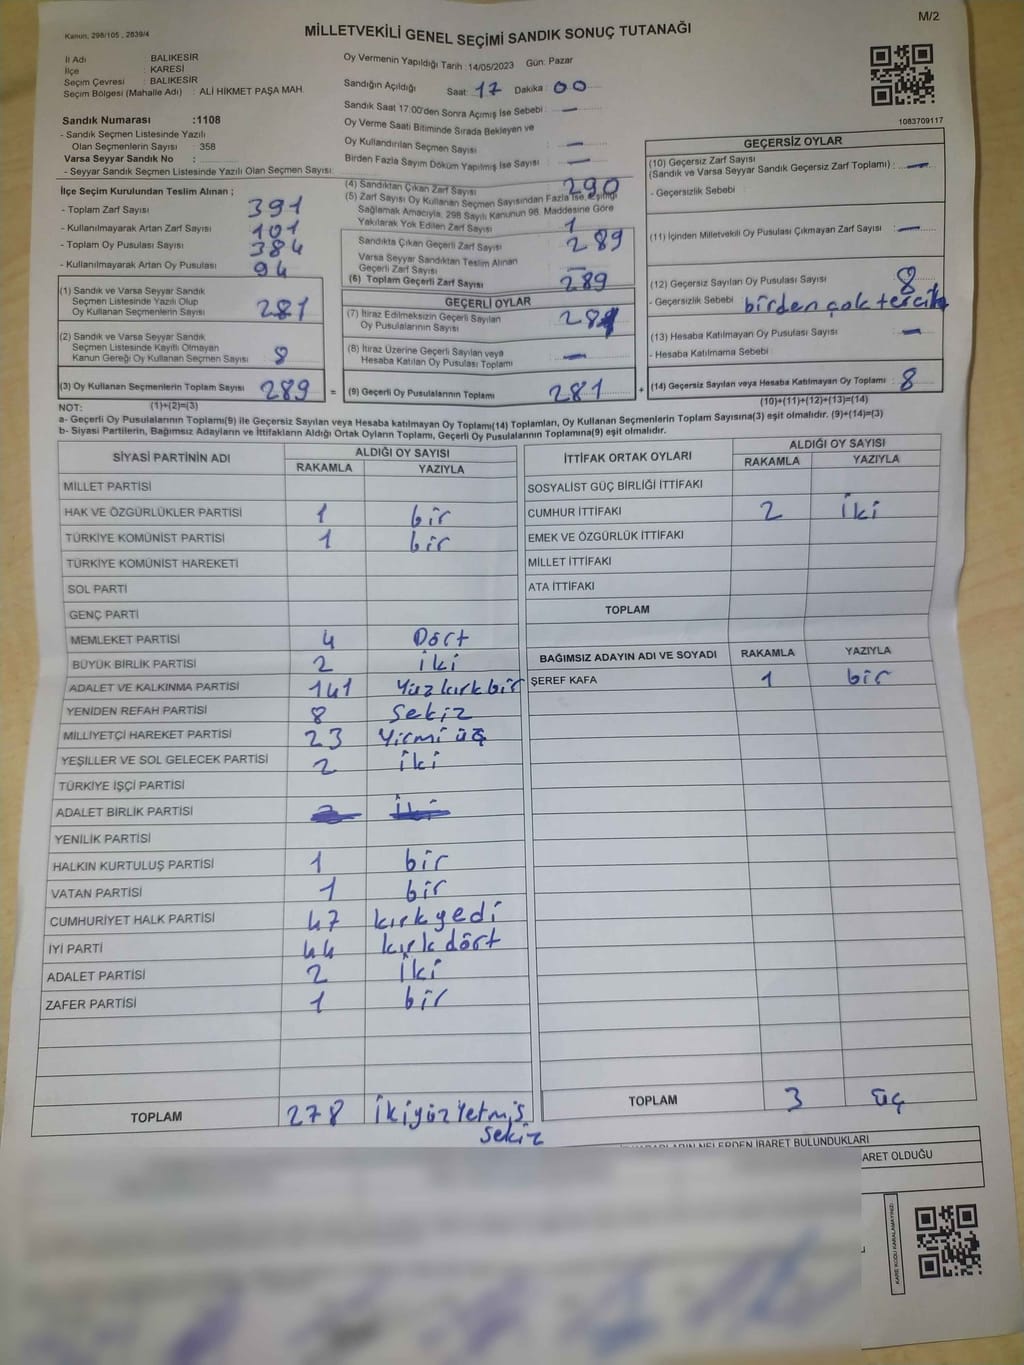 M/2
Kanun, 298/105 , 2839/4
MİLLETVEKİLİ GENEL SEÇİMİ SANDIK SONUÇ TUTANAĞI
İl Adı : BALIKESİR
İlçe : KARESİ
Seçim Çevresi : BALIKESİR
Seçim Bölgesi (Mahalle Adı) : ALİ HİKMET PAŞA MAH.
Sandık Numarası :1108
- Sandık Seçmen Listesinde Yazılı
Olan Seçmenlerin Sayısı 358
Varsa Seyyar Sandık No :
- Seyyar Seçmen Listesinde Yazılı Olan Seçmen Sayısı:
İlçe Seçim Kurulundan Teslim Alınan ;
- Toplam Zarf Sayısı 391
- Kullanılmayarak Artan Zarf Sayısı 101
- Toplam Oy Pusulası Sayısı 384
- Kullanılmayarak Artan Oy Pusulası 94
(1) Sandık ve Varsa Seyyar Sandık
Seçmen Listesinde Yazılı Olup
Oy Kullanan Seçmenlerin Sayısı 281
(2) Sandık ve Varsa Seyyar Sandık
Seçmen Listesinde Kayıtlı Olmayan
Kanun Gereği Oy Kullanan Seçmen Sayısı 8
(3) Oy Kullanan Seçmenlerin Toplam Sayısı 289 =
(1)+(2)=(3)
Oy Vermenin Yapıldığı Tarih :14/05/2023 Gün: Pazar
Sandığın Açıldığı Saat: 17 Dakika: 00
Sandık Saat 17:00'den Sonra Açılmış İse Sebebi : —
Oy Verme Saati Bitiminde Sırada Bekleyen ve
Oy Kullandırılan Seçmen Sayısı : —
Birden Fazla Sayım Döküm Yapılmış İse Sayısı : —
(4) Sandıktan Çıkan Zarf Sayısı 290
(5) Zarf Sayısı Oy Kullanan Seçmen Sayısından Fazla İse, Eşitliği
Sağlamak Amacıyla, 298 Sayılı Kanunun 98. Maddesine Göre
Yakılarak Yok Edilen Zarf Sayısı 1
Sandıkta Çıkan Geçerli Zarf Sayısı 289
Varsa Seyyar Sandıktan Teslim Alınan
Geçerli Zarf Sayısı —
(6) Toplam Geçerli Zarf Sayısı 289
GEÇERLİ OYLAR
(7) İtiraz Edilmeksizin Geçerli Sayılan
Oy Pusulalarının Sayısı 281
(8) İtiraz Üzerine Geçerli Sayılan veya
Hesaba Katılan Oy Pusulası Toplamı —
(9) Geçerli Oy Pusulalarının Toplamı 281 +
1083709117
GEÇERSİZ OYLAR
(10) Geçersiz Zarf Sayısı
(Sandık ve Varsa Seyyar Sandık Geçersiz Zarf Toplamı) : —
- Geçersizlik Sebebi
(11) İçinden Milletvekili Oy Pusulası Çıkmayan Zarf Sayısı : —
(12) Geçersiz Sayılan Oy Pusulası Sayısı 8
- Geçersizlik Sebebi birden çok tercih
(13) Hesaba Katılmayan Oy Pusulası Sayısı —
- Hesaba Katılmama Sebebi
(14) Geçersiz Sayılan veya Hesaba Katılmayan Oy Toplamı : 8
(10)+(11)+(12)+(13)=(14)
NOT:
a- Geçerli Oy Pusulalarının Toplamı(9) ile Geçersiz Sayılan veya Hesaba katılmayan Oy Toplamı(14) Toplamları, Oy Kullanan Seçmenlerin Toplam Sayısına(3) eşit olmalıdır. (9)+(14)=(3)
b- Siyasi Partilerin, Bağımsız Adayların ve İttifakların Aldığı Ortak Oyların Toplamı, Geçerli Oy Pusulalarının Toplamına(9) eşit olmalıdır.
SİYASİ PARTİNİN ADI ALDIĞI OY SAYISI
RAKAMLA YAZIYLA
MİLLET PARTİSİ
HAK VE ÖZGÜRLÜKLER PARTİSİ 1 bir
TÜRKİYE KOMÜNİST PARTİSİ 1 bir
TÜRKİYE KOMÜNİST HAREKETİ
SOL PARTİ
GENÇ PARTİ
MEMLEKET PARTİSİ 4 Dört
BÜYÜK BİRLİK PARTİSİ 2 iki
ADALET VE KALKINMA PARTİSİ 141 Yüz kırk bir
YENİDEN REFAH PARTİSİ 8 sekiz
MİLLİYETÇİ HAREKET PARTİSİ 23 Yirmi üç
YEŞİLLER VE SOL GELECEK PARTİSİ 2 iki
TÜRKİYE İŞÇİ PARTİSİ
ADALET BİRLİK PARTİSİ
YENİLİK PARTİSİ
HALKIN KURTULUŞ PARTİSİ 1 bir
VATAN PARTİSİ 1 bir
CUMHURİYET HALK PARTİSİ 47 kırk yedi
İYİ PARTİ 44 kırk dört
ADALET PARTİSİ 2 iki
ZAFER PARTİSİ 1 bir
TOPLAM 278 ikiyüz Yetmiş
sekiz
İTTİFAK ORTAK OYLARI ALDIĞI OY SAYISI
RAKAMLA YAZIYLA
SOSYALİST GÜÇ BİRLİĞİ İTTİFAKI
CUMHUR İTTİFAKI 2 iki
EMEK VE ÖZGÜRLÜK İTTİFAKI
MİLLET İTTİFAKI
ATA İTTİFAKI
TOPLAM
BAĞIMSIZ ADAYIN ADI VE SOYADI RAKAMLA YAZIYLA
ŞEREF KAFA 1 bir
TOPLAM 3 üç
NELERDEN İBARET BULUNDUKLARI
OLDUĞU
KARE KODU KARALAMAYINIZ!